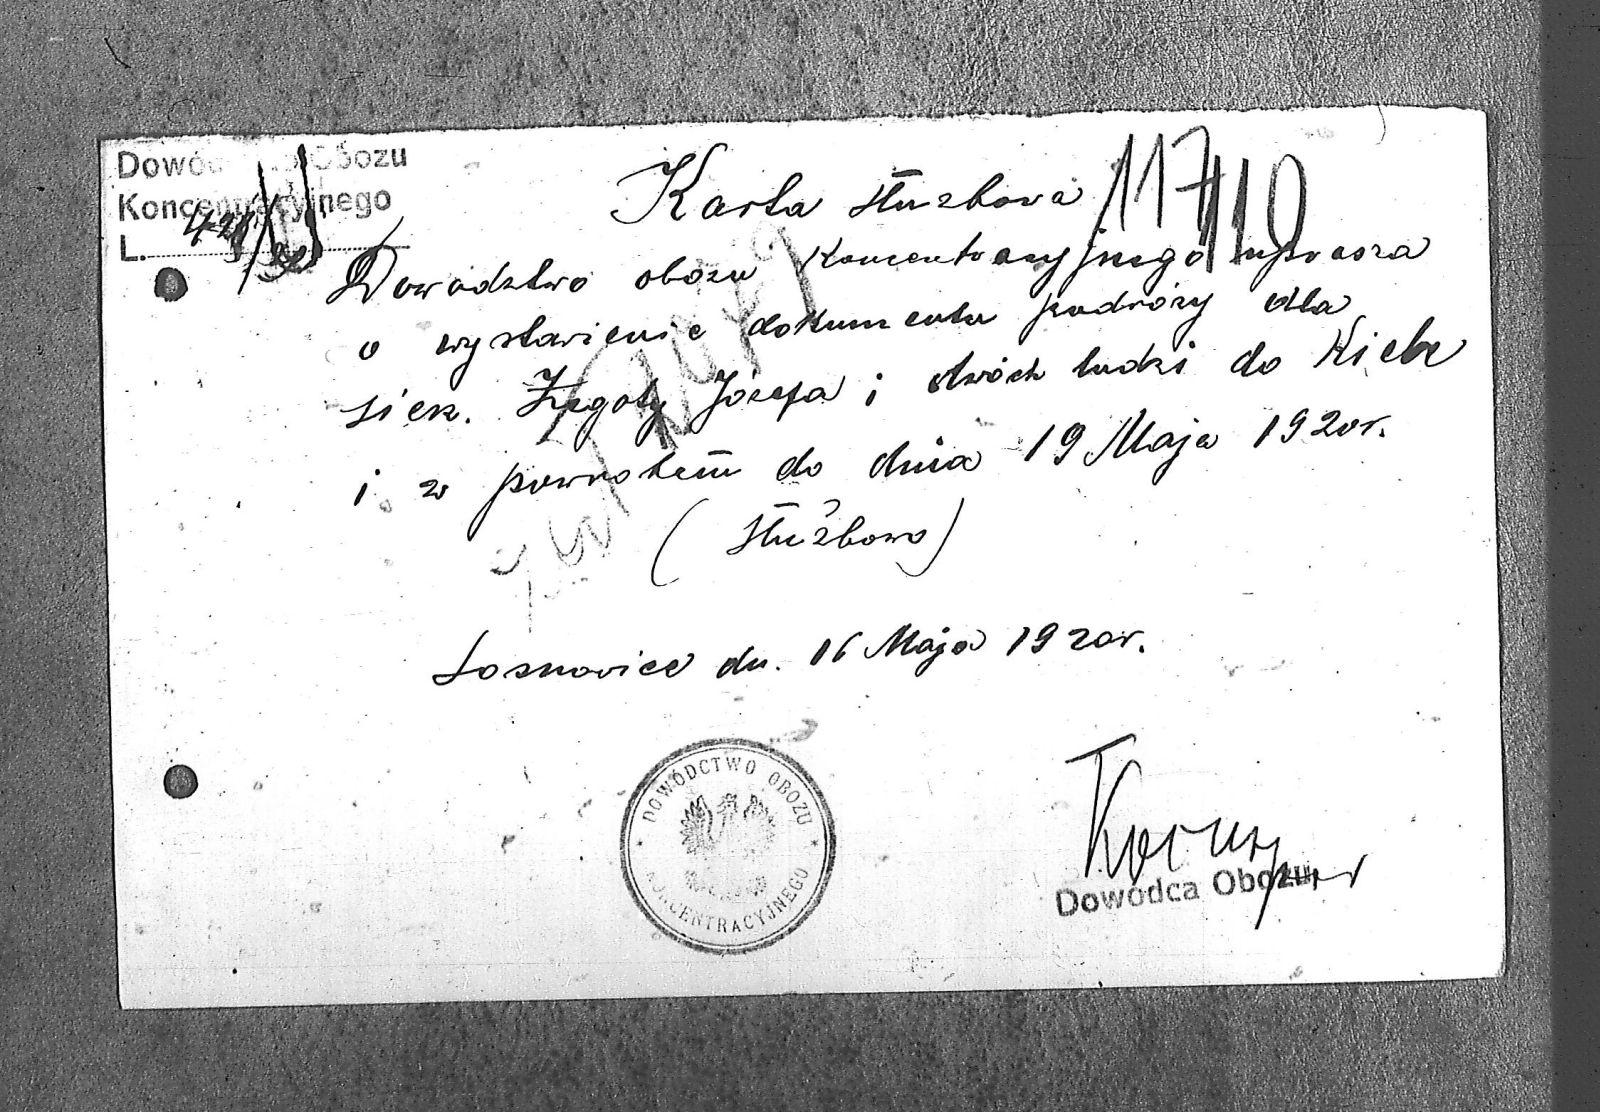 Dowództwo Obozu
Koncentracyjnego
L.
Karta służbowa 117/10
Dowództwo obozu koncentracyjnego uprasza
o wystawienie dokumentu podróży dla
sierż. Żegoty Józefa i dwóch ludzi do Kielc
i z powrotem do dnia 19 Maja 1920r.
(służbowo)
Sosnowice dn. 16 Maja 1920r.
DOWÓDCTWO OBOZU
KONCENTRACYJNEGO
Dowódca Obozu